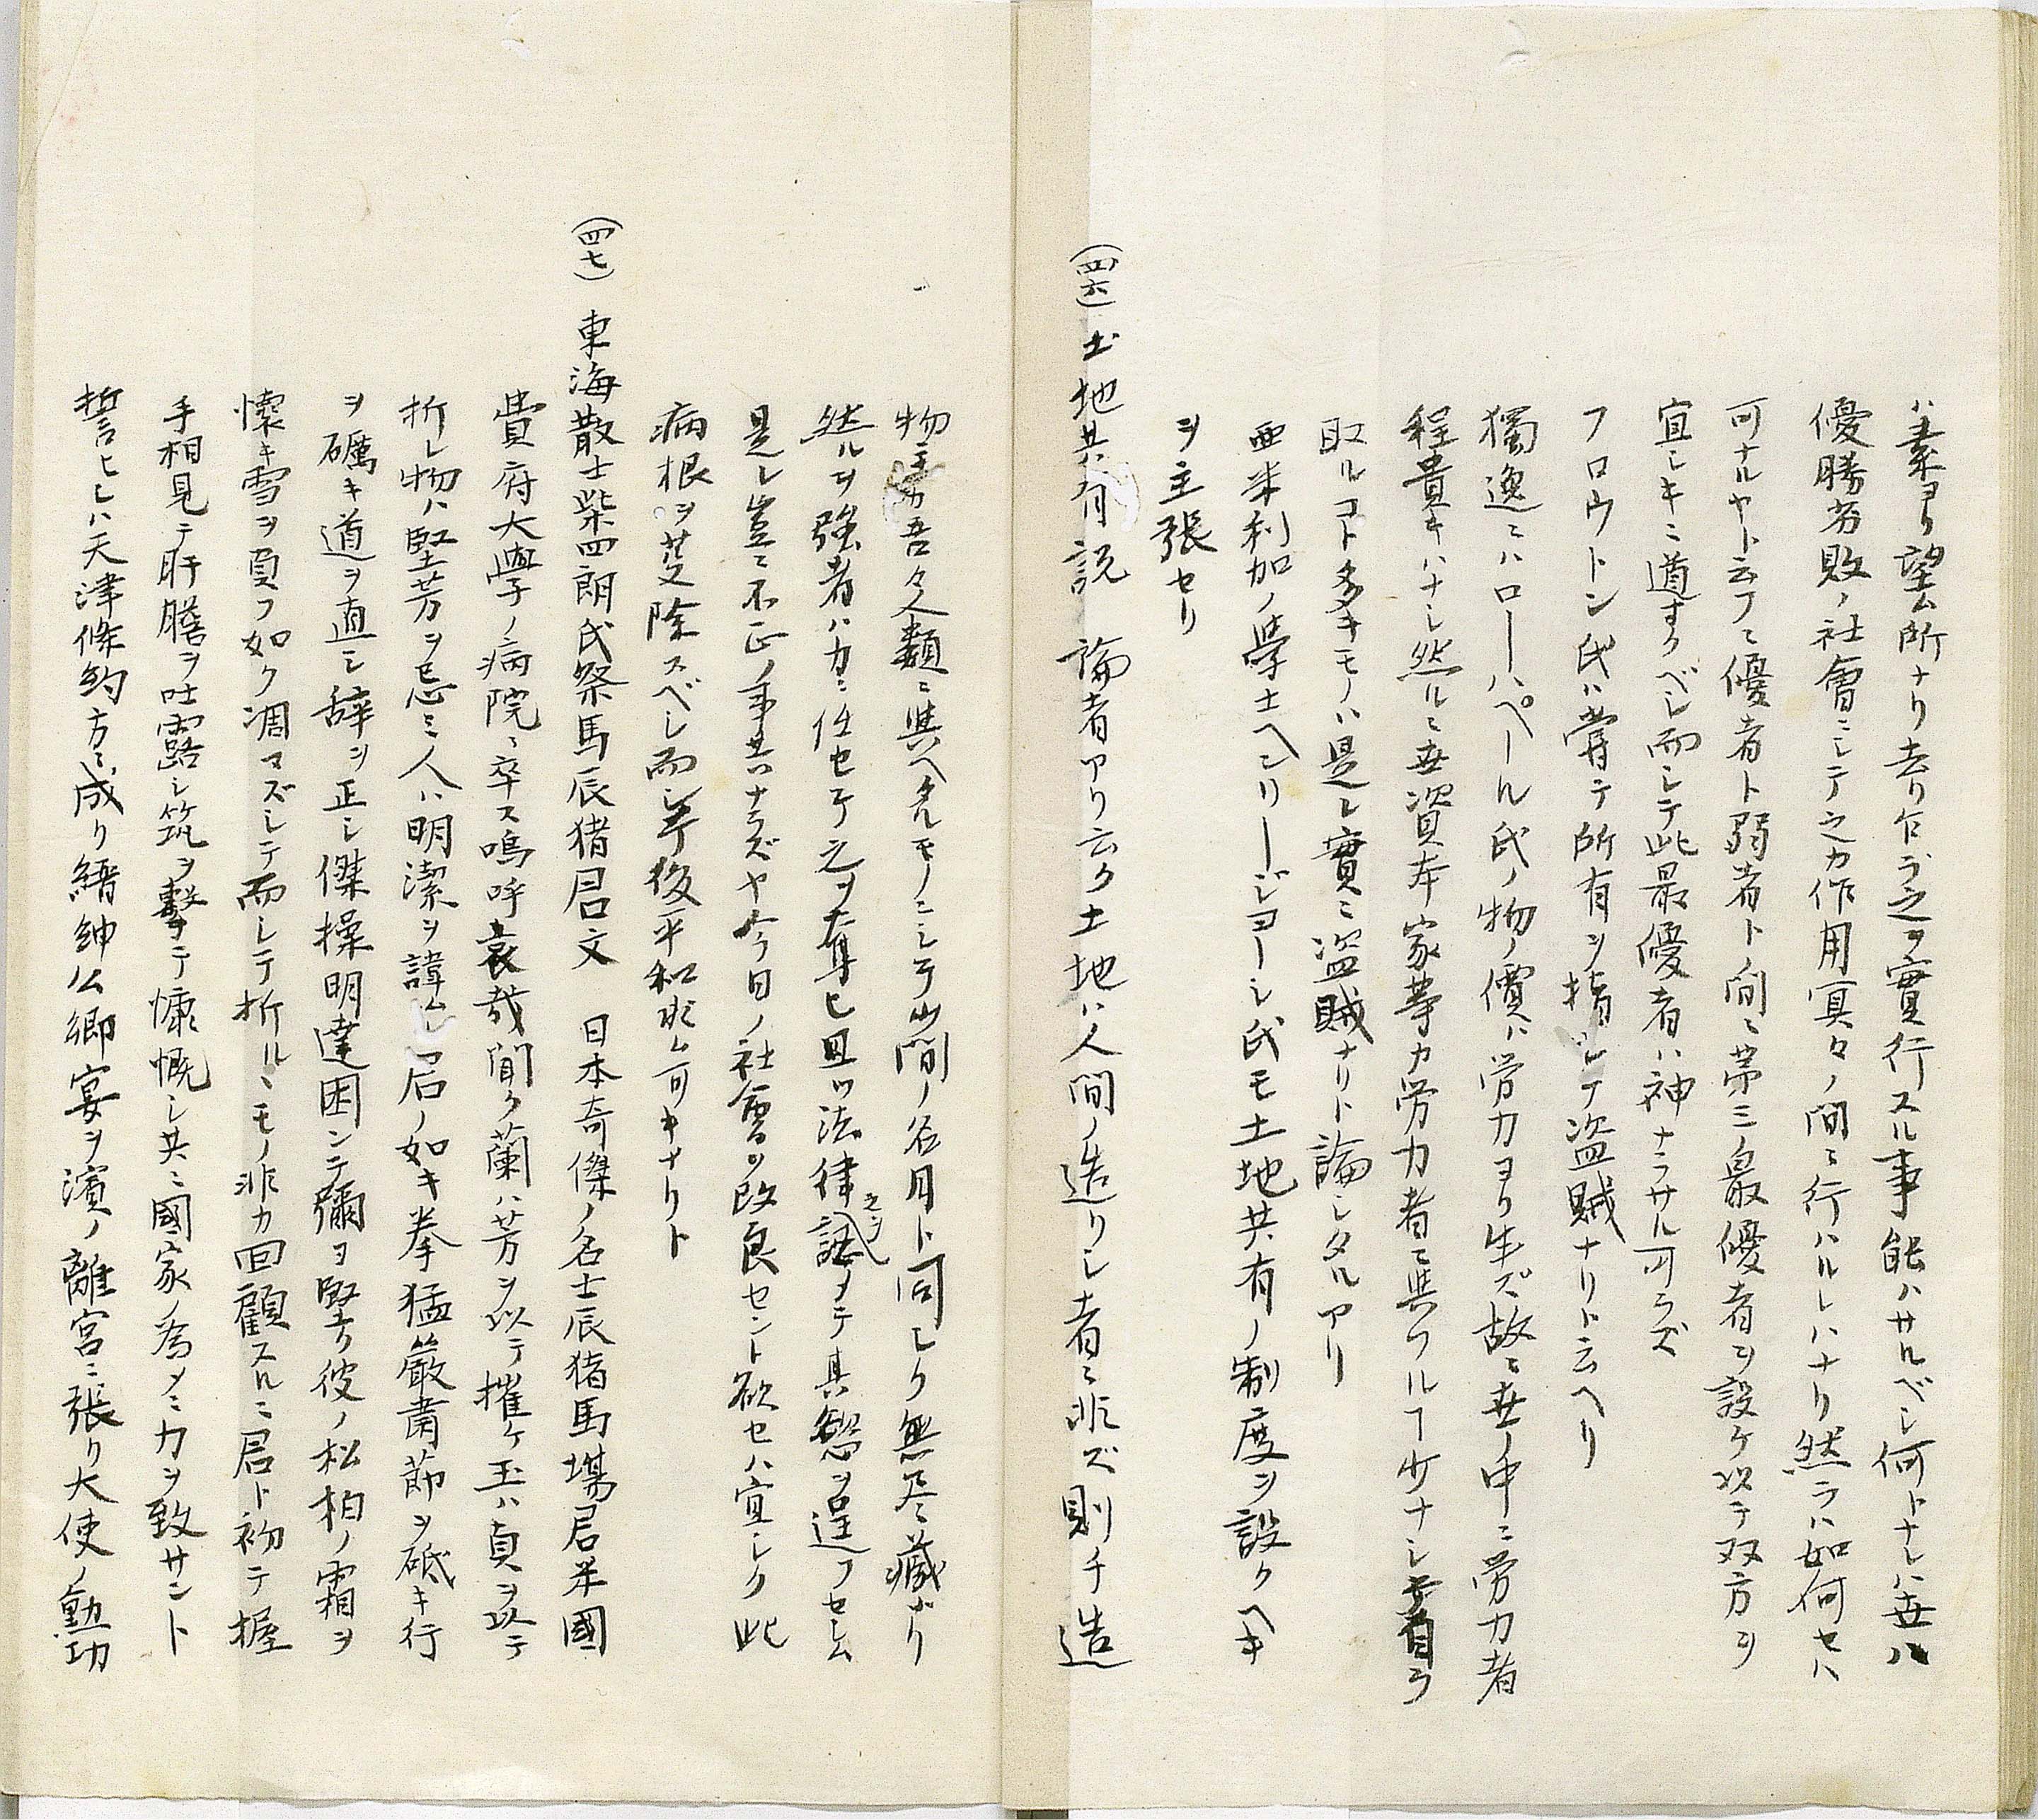 ハ素ヨリ望ム所ナリ去リ乍ラ之ヲ實行スル事能ハサルベシ何トナレハ世ハ
優勝劣敗ノ社會ニシテ之カ作用冥々ノ間ニ行ハルレハナリ然ラハ如何セハ
可ナルヤト云フニ優者ト弱者トノ間ニ第三ノ最優者ヲ設ケ以テ双方ヲ
宜シキニ導クベシ而シテ此最優者ハ神ナラサル可ラズ
フロウトン氏ハ嘗テ所有ヲ指シテ盗賊ナリト云ヘリ
獨逸ニハローハペール氏ノ物ノ價ハ労力ヨリ生ズ故ニ世ノ中ニ労力者
程貴キハナシ然ルニ世資本家等カ労力者ニ與フルヿ少ナシ 自ラ
取ルコト多キモノハ是レ實ニ盗賊ナリト論シタルアリ
亜米利加ノ學士ヘンリージヨージ氏モ土地共有ノ制度ヲ設クヘキ
ヲ主張セリ
(四六) 土地共有説 論者アリ云ク土地ハ人間ノ造リシ者ニ非ズ則チ造
物主カ吾々人類ニ與ヘタルモノニシテ山間ノ名月ト同シク無尽藏ナリ
然ルヲ強者ハ力ニ任セテ之ヲ奪ヒ且ツ法律之ヲ認メテ其慾ヲ逞フセシム
是レ豈ニ不正ノ事共ナラズヤ今日ノ社會ヲ改良セント欲セハ宜シク此
病根ヲ芟除スベシ而シテ後平和求ム可キナリト
(四七) 東海散士柴四朗氏祭馬辰猪君文 日本奇傑ノ名士辰猪馬塲君米國
費府大學ノ病院ニ卒ス嗚呼哀哉聞ク蘭ハ芳ヲ以テ摧ケ玉ハ貞ヲ以テ
折レ物ハ堅芳ヲ忌ミ人ハ明潔ヲ諱ム君ノ如キ拳猛嚴肅節ヲ砥キ行
ヲ礪キ道ヲ直シ辞ヲ正シ傑操明達困シテ彌ヨ堅ク彼ノ松柏ノ霜ヲ
懐キ雪ヲ負フ如ク凋マズシテ而シテ折ルヽモノ非カ回顧スルニ君ト初テ握
手相見テ肝膽ヲ吐露シ筑ヲ撃テ慷慨シ共ニ國家ノ為メニ力ヲ致サント
誓ヒシハ天津條約方ニ成リ縉紳公卿宴ヲ濱ノ離宮ニ張リ大使ノ勲功